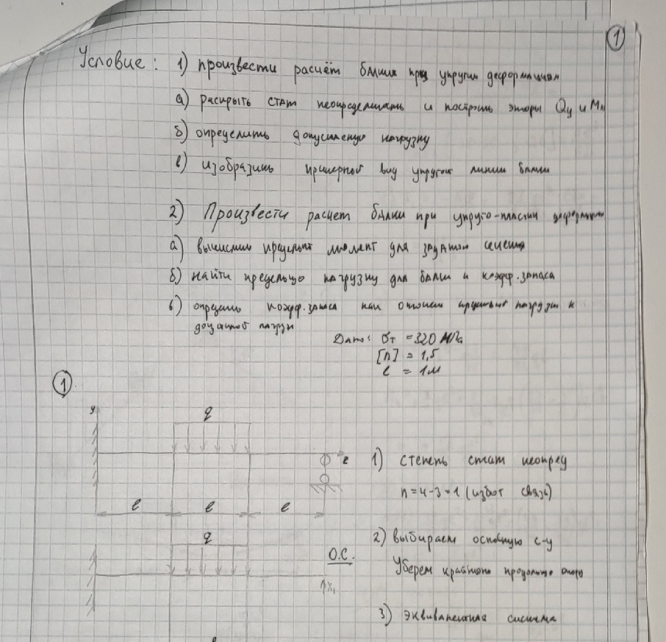 1
Условие: 1) произвести расчёт балки при упругих деформациях
а) раскрыть стат неопределимость и построить эпюры Qy и Mп
б) определить допускаемую нагрузку
в) изобразить примерный вид упругой линии балки
2) Произвести расчет балки при упруго-пластич деформациях
а) вычислить предельный момент для заданного сечения
б) найти предельную нагрузку для балки и коэфф. запаса
в) определ коэфф. запаса как отношен предельной нагрузки к
допускаемой нагрузк
Дано: σт = 320 МПа
[n] = 1,5
l = 1м
1
y
q
z
1) степень стат неопред
n = 4-3 = 1 (избыт связь)
l l l
q
О.С.
x₁
2) выбираем основную с-у
Уберем крайнюю правую опору
3) эквивалентная система